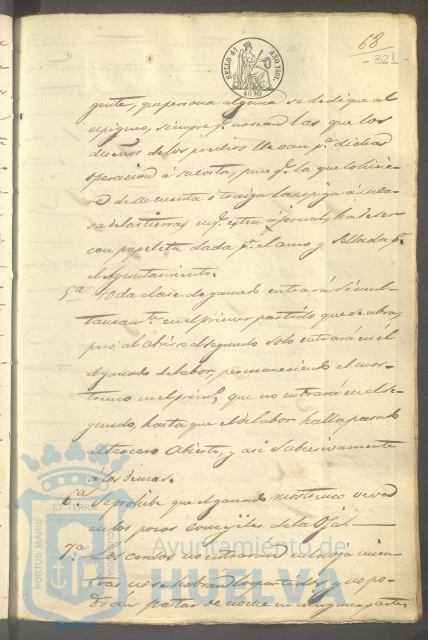 68
- 321 -
SELLO 4º AÑO 1861
40 Ms
gente, que persona alguna se dedique al
espigueo, siempre q. no sean las que los
dueños de los predios llevan pª dichas
operacion á su costa, pues qe la que lo hicie
re de su cuenta ó traiga la espiga á su ca-
sa de las tierras en q. esten á jornal, ha de ser
con papeleta dada pr. el amo y Sellada pr.
el Ayuntamiento.
5ª Toda clase de ganado entrará simul-
taneamte. en el primer partido que se abra,
pero al abrirse el segundo solo entrará en él
el ganado de labor, permaneciendo el mos-
trenco en el que no entrará en el se-
gundo, hasta que el de labor halla pasado
al tercero abierto, y asi subcesivamente
á los demas.
6ª Se prohibe que el ganado mostrenco
en los pozos concegiles de la
7ª Los cerdos no entraran en la oja mien-
tras no se habran los partidos, y no po-
drán pastar de noche en ninguna parte
PORTUS MARIS ET TERRAE CUSTODIA
Ayuntamiento de
HUELVA